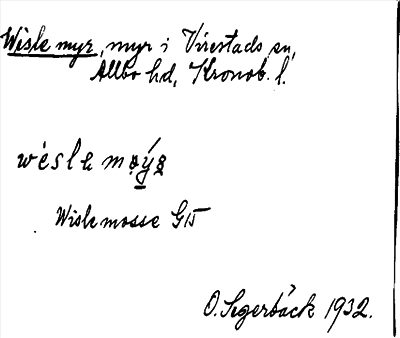 Wisle myr, myr i Virestads sn,
Allbo hd, Kronob. l.
Wislemosse G15
O. Segerbäck 1932.